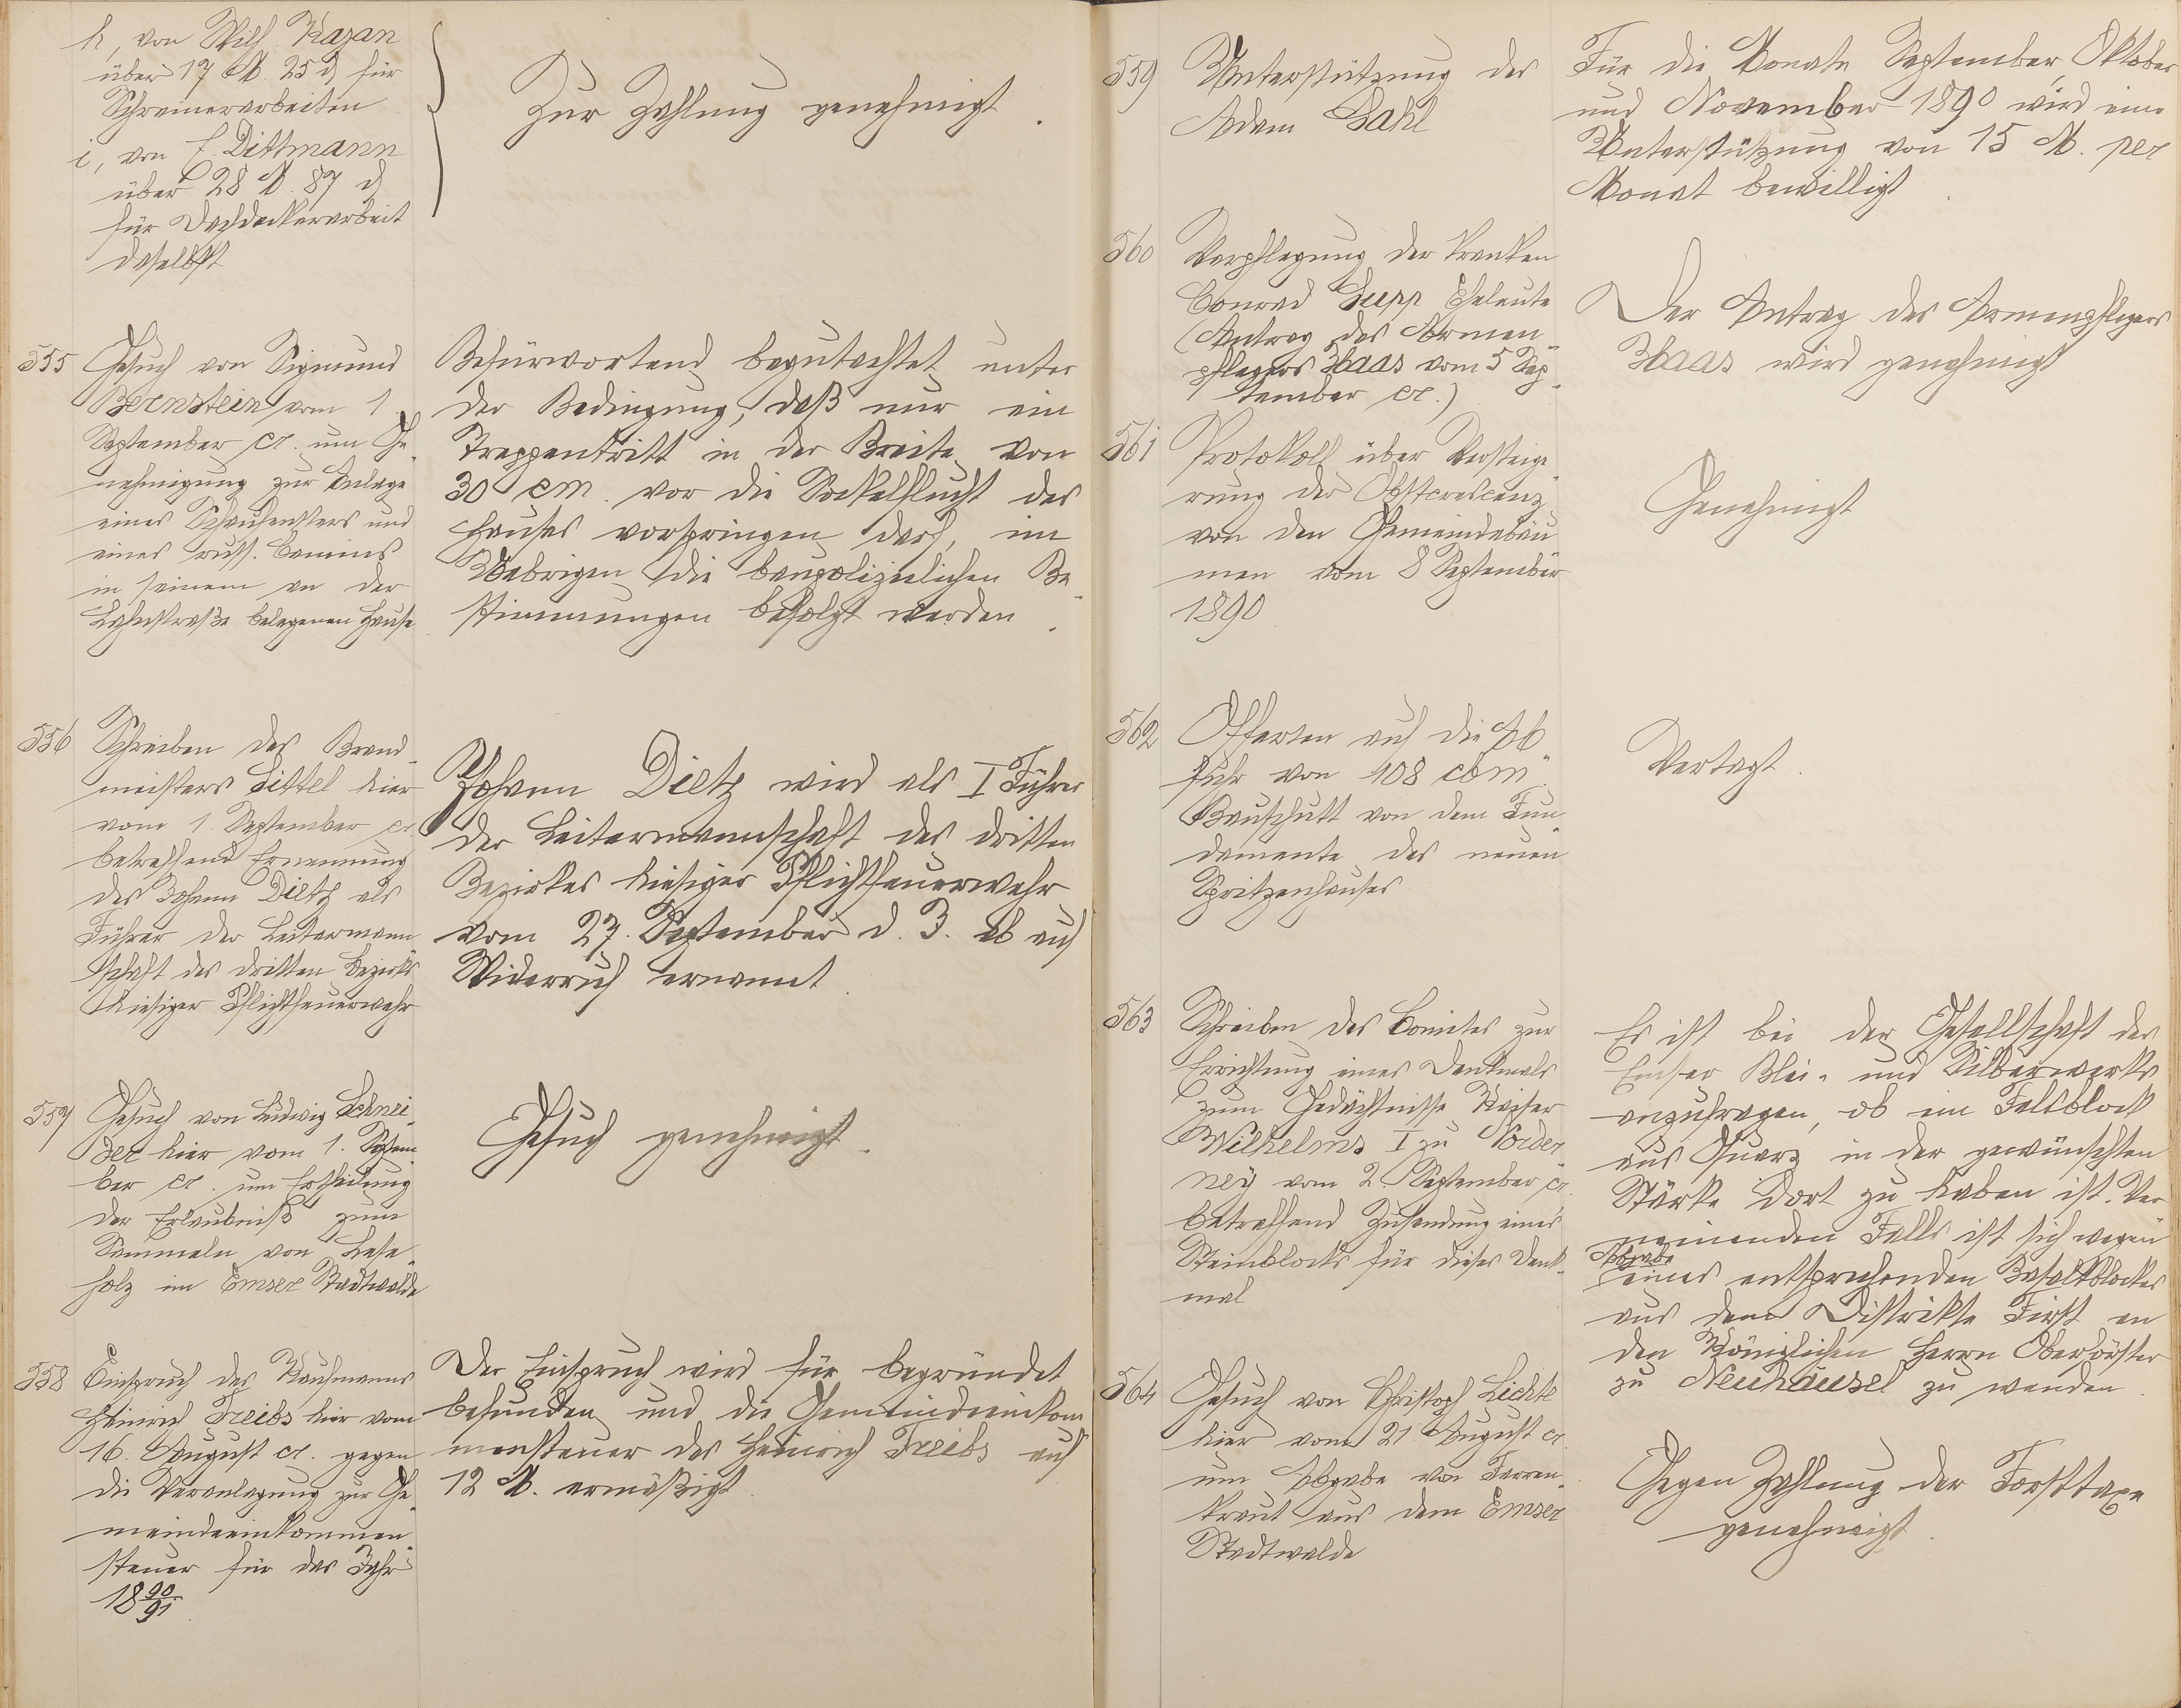 h, von Wilh. Kazan
über 17 M. 25 d, für
Schreinerarbeiten
i, von C. Dittmann
über 28 M. 87 d
für Dachdeckerarbeit
daselbst
Zur Zahlung genehmigt.
555 Gesuch von Sigmund
Bernstein vom 1
September cr. um Ge-
nehmigung zur Anlage
eines Schaufensters und
eines russ. Camins
in seinem an der
Lahnstraße belegenen Hause
Befürwortend begutachtet unter
der Bedingung, daß nur ein
Treppentritt in der Breite von
30 cm. vor die Sockelflucht des
Hauses vorspringen darf, im
Uebrigen die baupolizeilichen Be-
stimmungen befolgt werden.
556 Schreiben des Brand-
meisters Sittel hier
vom 1. September cr.
betreffend Ernennung
des Johann Dietz als
Führer der Leitermann-
schaft des dritten Bezirks
hiesiger Pflichtfeuerwehr
Johann Dietz wird als I Führer
der Leitermannschaft des dritten
Bezirkes hiesiger Pflichtfeuerwehr
vom 27. September d. J. ab auf
Widerruf ernannt.
557 Gesuch von Ludwig Schnei-
der hier vom 1. Septem-
ber cr. um Ertheilung
der Erlaubniß zum
Sammeln von Lese-
holz im Emser Stadtwalde
Gesuch genehmigt.
558 Einspruch des Kaufmanns
Heinrich Treibs hier vom
16. August cr. gegen
die Veranlagung zur Ge-
meindeeinkommen-
steuer für das Jahr
18 90/91
Der Einspruch wird für begründet
befunden und die Gemeindeeinkom-
mensteuer des Heinrich Treibs auf
12 M. ermäßigt.
559 Unterstützung des
Adam Dahl
Für die Monate September, Oktober
und November 1890 wird eine
Unterstützung von 15 M. per
Monat bewilligt.
560 Verpflegung der kranken
Conrad Supp Eheleute
(Antrag des Armen-
pflegers Haas vom 5 Sep-
tember cr.)
Der Antrag des Armenpflegers
Haas wird genehmigt
561 Protokoll über Versteige-
rung der Obstcrescenz
von den Gemeindebäu-
men vom 8 September
1890
Genehmigt
562 Offerten auf die Ab-
fuhr von 108 cbm
Bauschutt von dem Fun-
damente des neuen
Spritzenhauses
Vertagt.
563 Schreiben des Comites zur
Errichtung eines Denkmals
zum Gedächtnisse Kaiser
Wilhelms I zu Norder-
ney vom 2. September cr.
betreffend Zusendung eines
Steinblocks für dieses Denk-
mal
Es ist bei der Gesellschaft des
Emser Blei- und Silberwerks
anzufragen, ob ein Felsblock
aus Quarz in der gewünschten
Stärke dort zu haben ist. Ver-
neinenden Falls ist sich wegen
Abgabe
eines entsprechenden Basaltblockes
aus dem Distrikte First an
den Königlichen Herrn Oberförster
zu Neuhäusel zu wenden.
564 Gesuch von Christoph Lichte
hier vom 21. August cr.
um Abgabe von Farren-
kraut aus dem Emser
Stadtwalde
Gegen Zahlung der Forsttaxe
genehmigt.